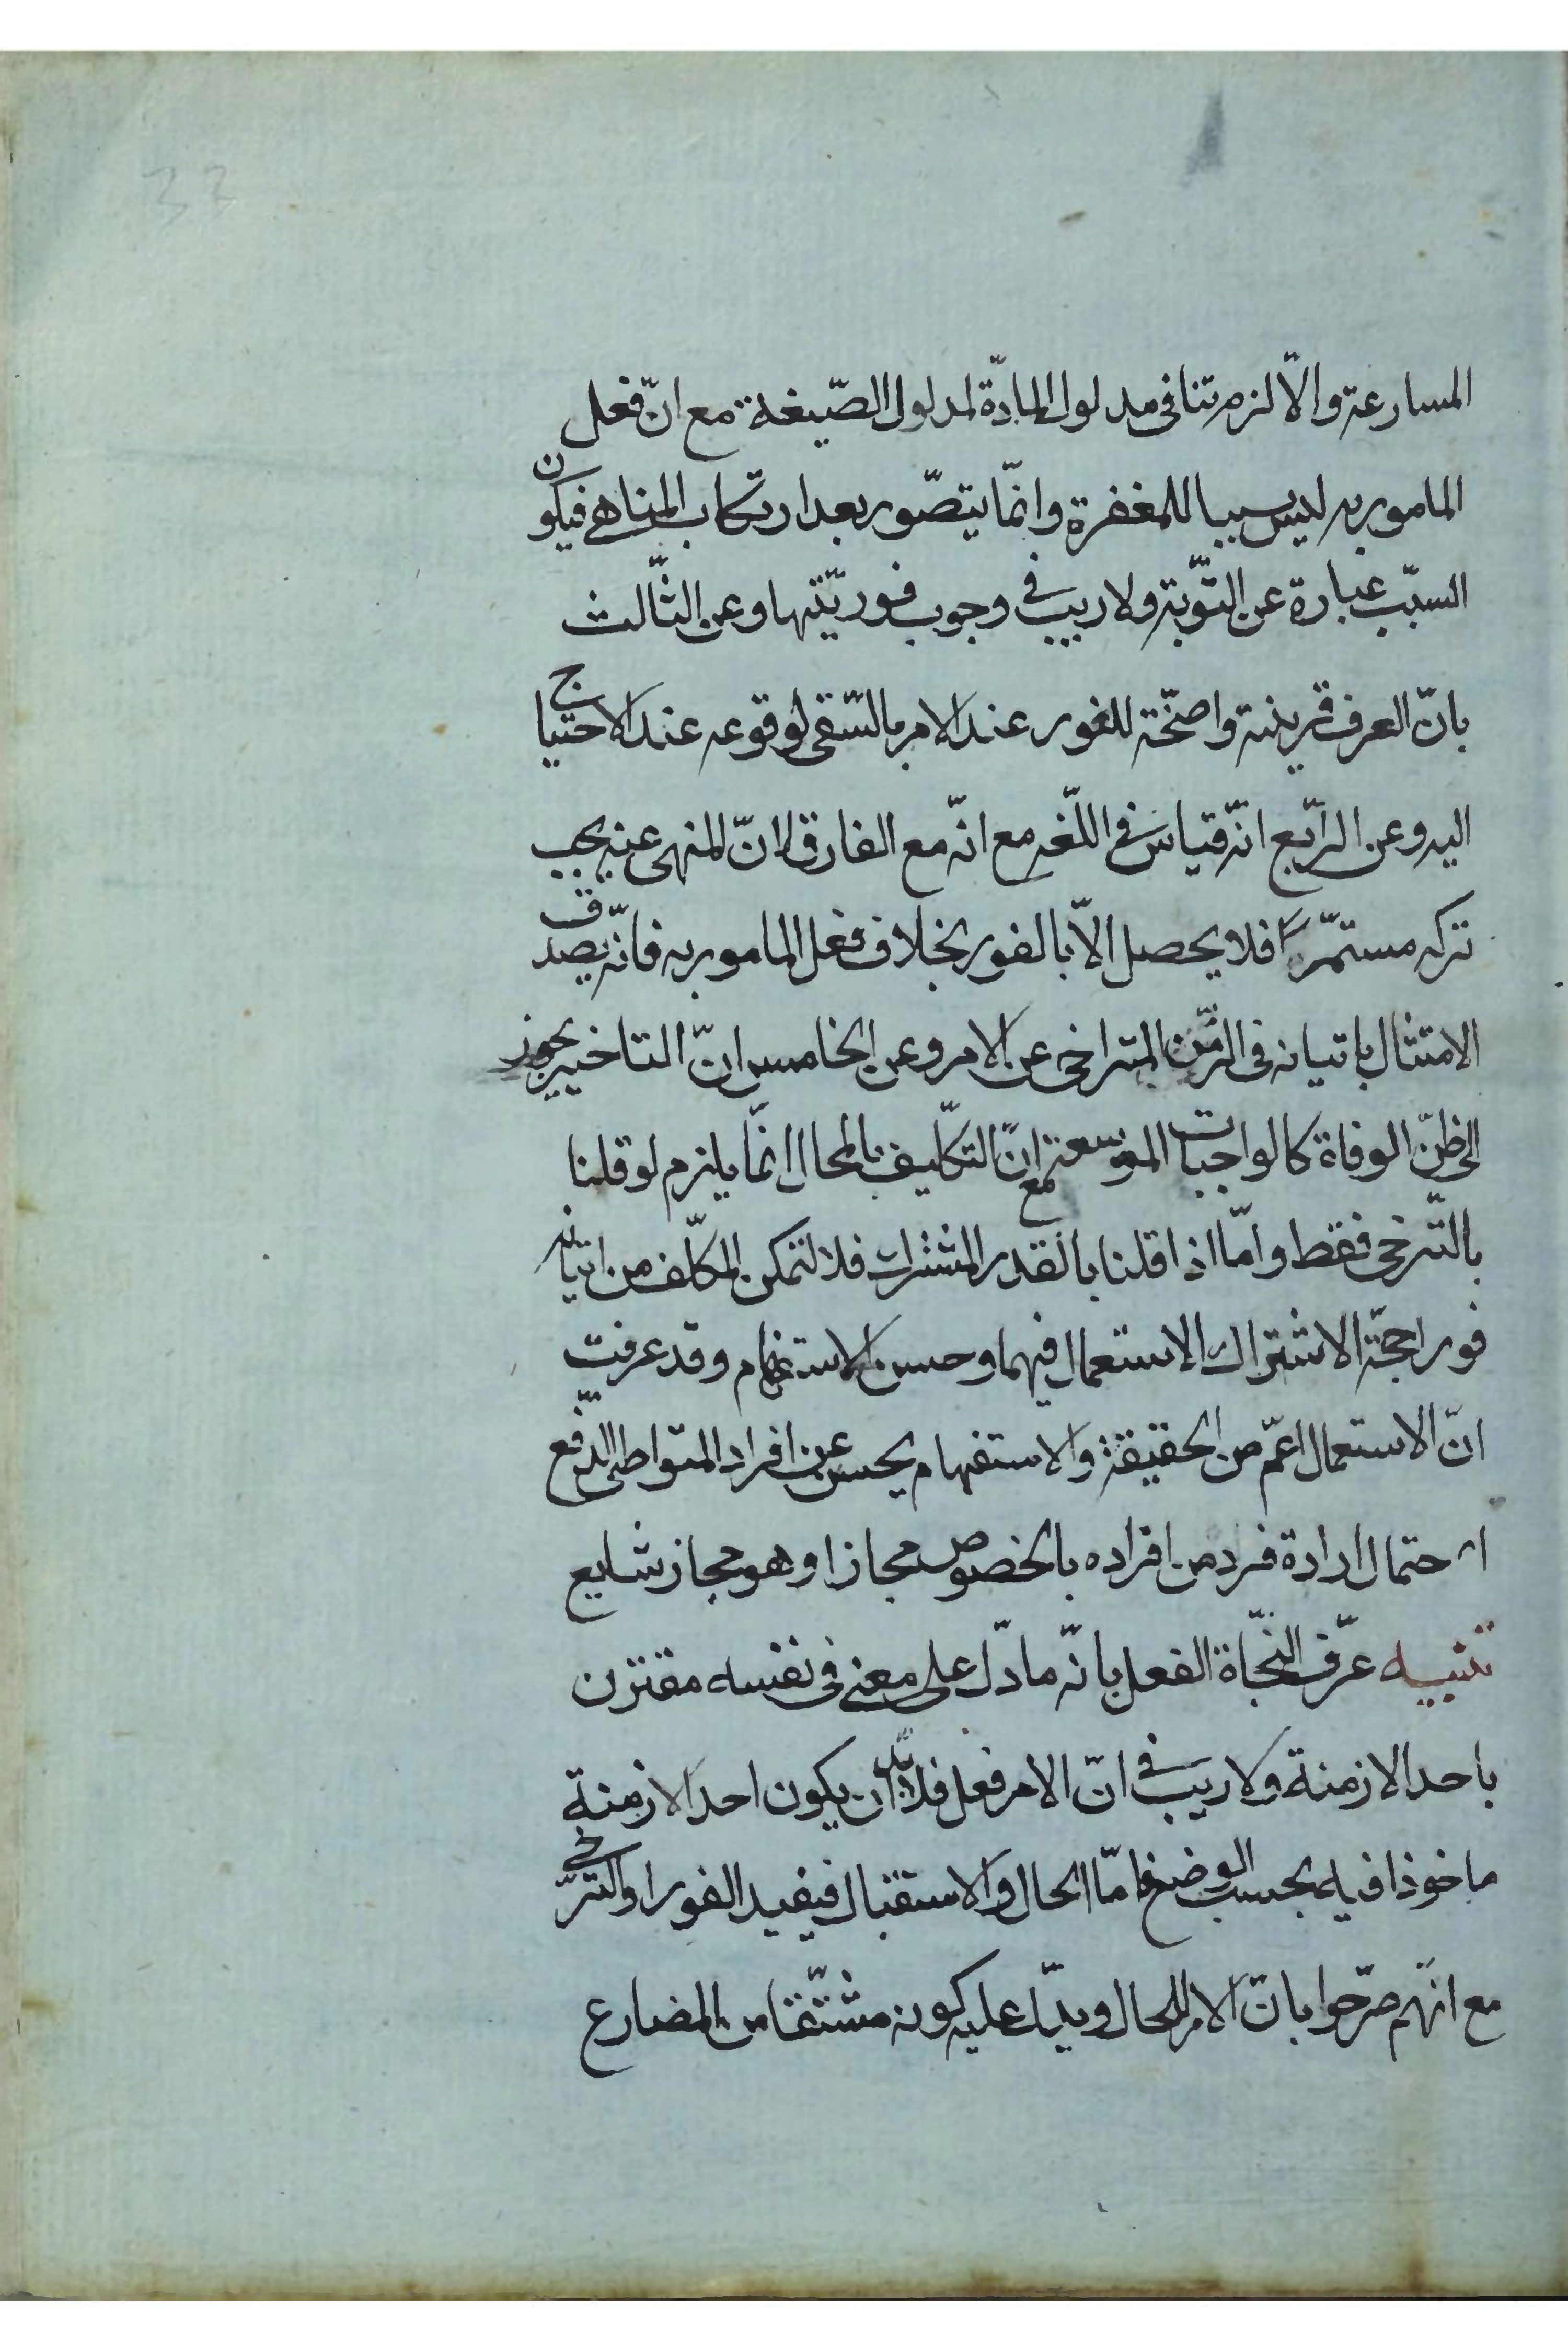 المسارعة والّا لزم تنافى مدلول المادّة لمدلول الصّيغة مع انّ فعل
المامور به ليس سببا للمغفرة وانّما يتصّور بعد ارتكاب المناهى فيكون
السبّب عبارة عن التّوبة ولا ريب فى وجوب فوريّتها وعن الثّالث
بانّ العرف قرينة واضحّة للفور عند الامر بالسّقى لوقوعه عند الاحتياج
اليه وعن الرّابع انّه قياس فى اللّغه مع انّه مع الفارق لانّ المنهى عنه يجب
تركه مستمّرا فلا يحصل الّا بالفور بخلاف فعل المامور به فانّه يصدق
الامتثال باتيانه فى الزّمن المتراخى عن الامر وعن الخامس انّ التاخير يجوز
الى ظنّ الوفاة كالواجبات الموسعة مع انّ التكّليف بالمحال انّما يلزم لو قلنا
بالتّرخى فقط وامّا اذا قلنا بالقدر المشترك فلا لتمكن المكلّف من اتيانه
فورا حجّة الاشتراك الاستعمال فيهما وحسن الاستفهام وقد عرفت
انّ الاستعمال اعمّ من الحقيقة والاستفهام يحسن عن افراد المتواطى لدفع
احتمال ارادة فرد من افراده بالخصوص مجازا وهو مجاز شايع
تنبيه عرّف النحّاة الفعل بانّه ما دلّ على معنى فى نفسه مقترن
باحد الازمنة ولا ريب فى انّ الامر فعل فلا بدّ ان يكون احد الازمنة
ماخوذا فيه بحسب الوضع فامّا الحال والاستقبال فيفيد الفور او التّرخى
مع انّهم صرّحوا بانّ الامر للحال ويدلّ عليه كونه مشتّقا من المضارع